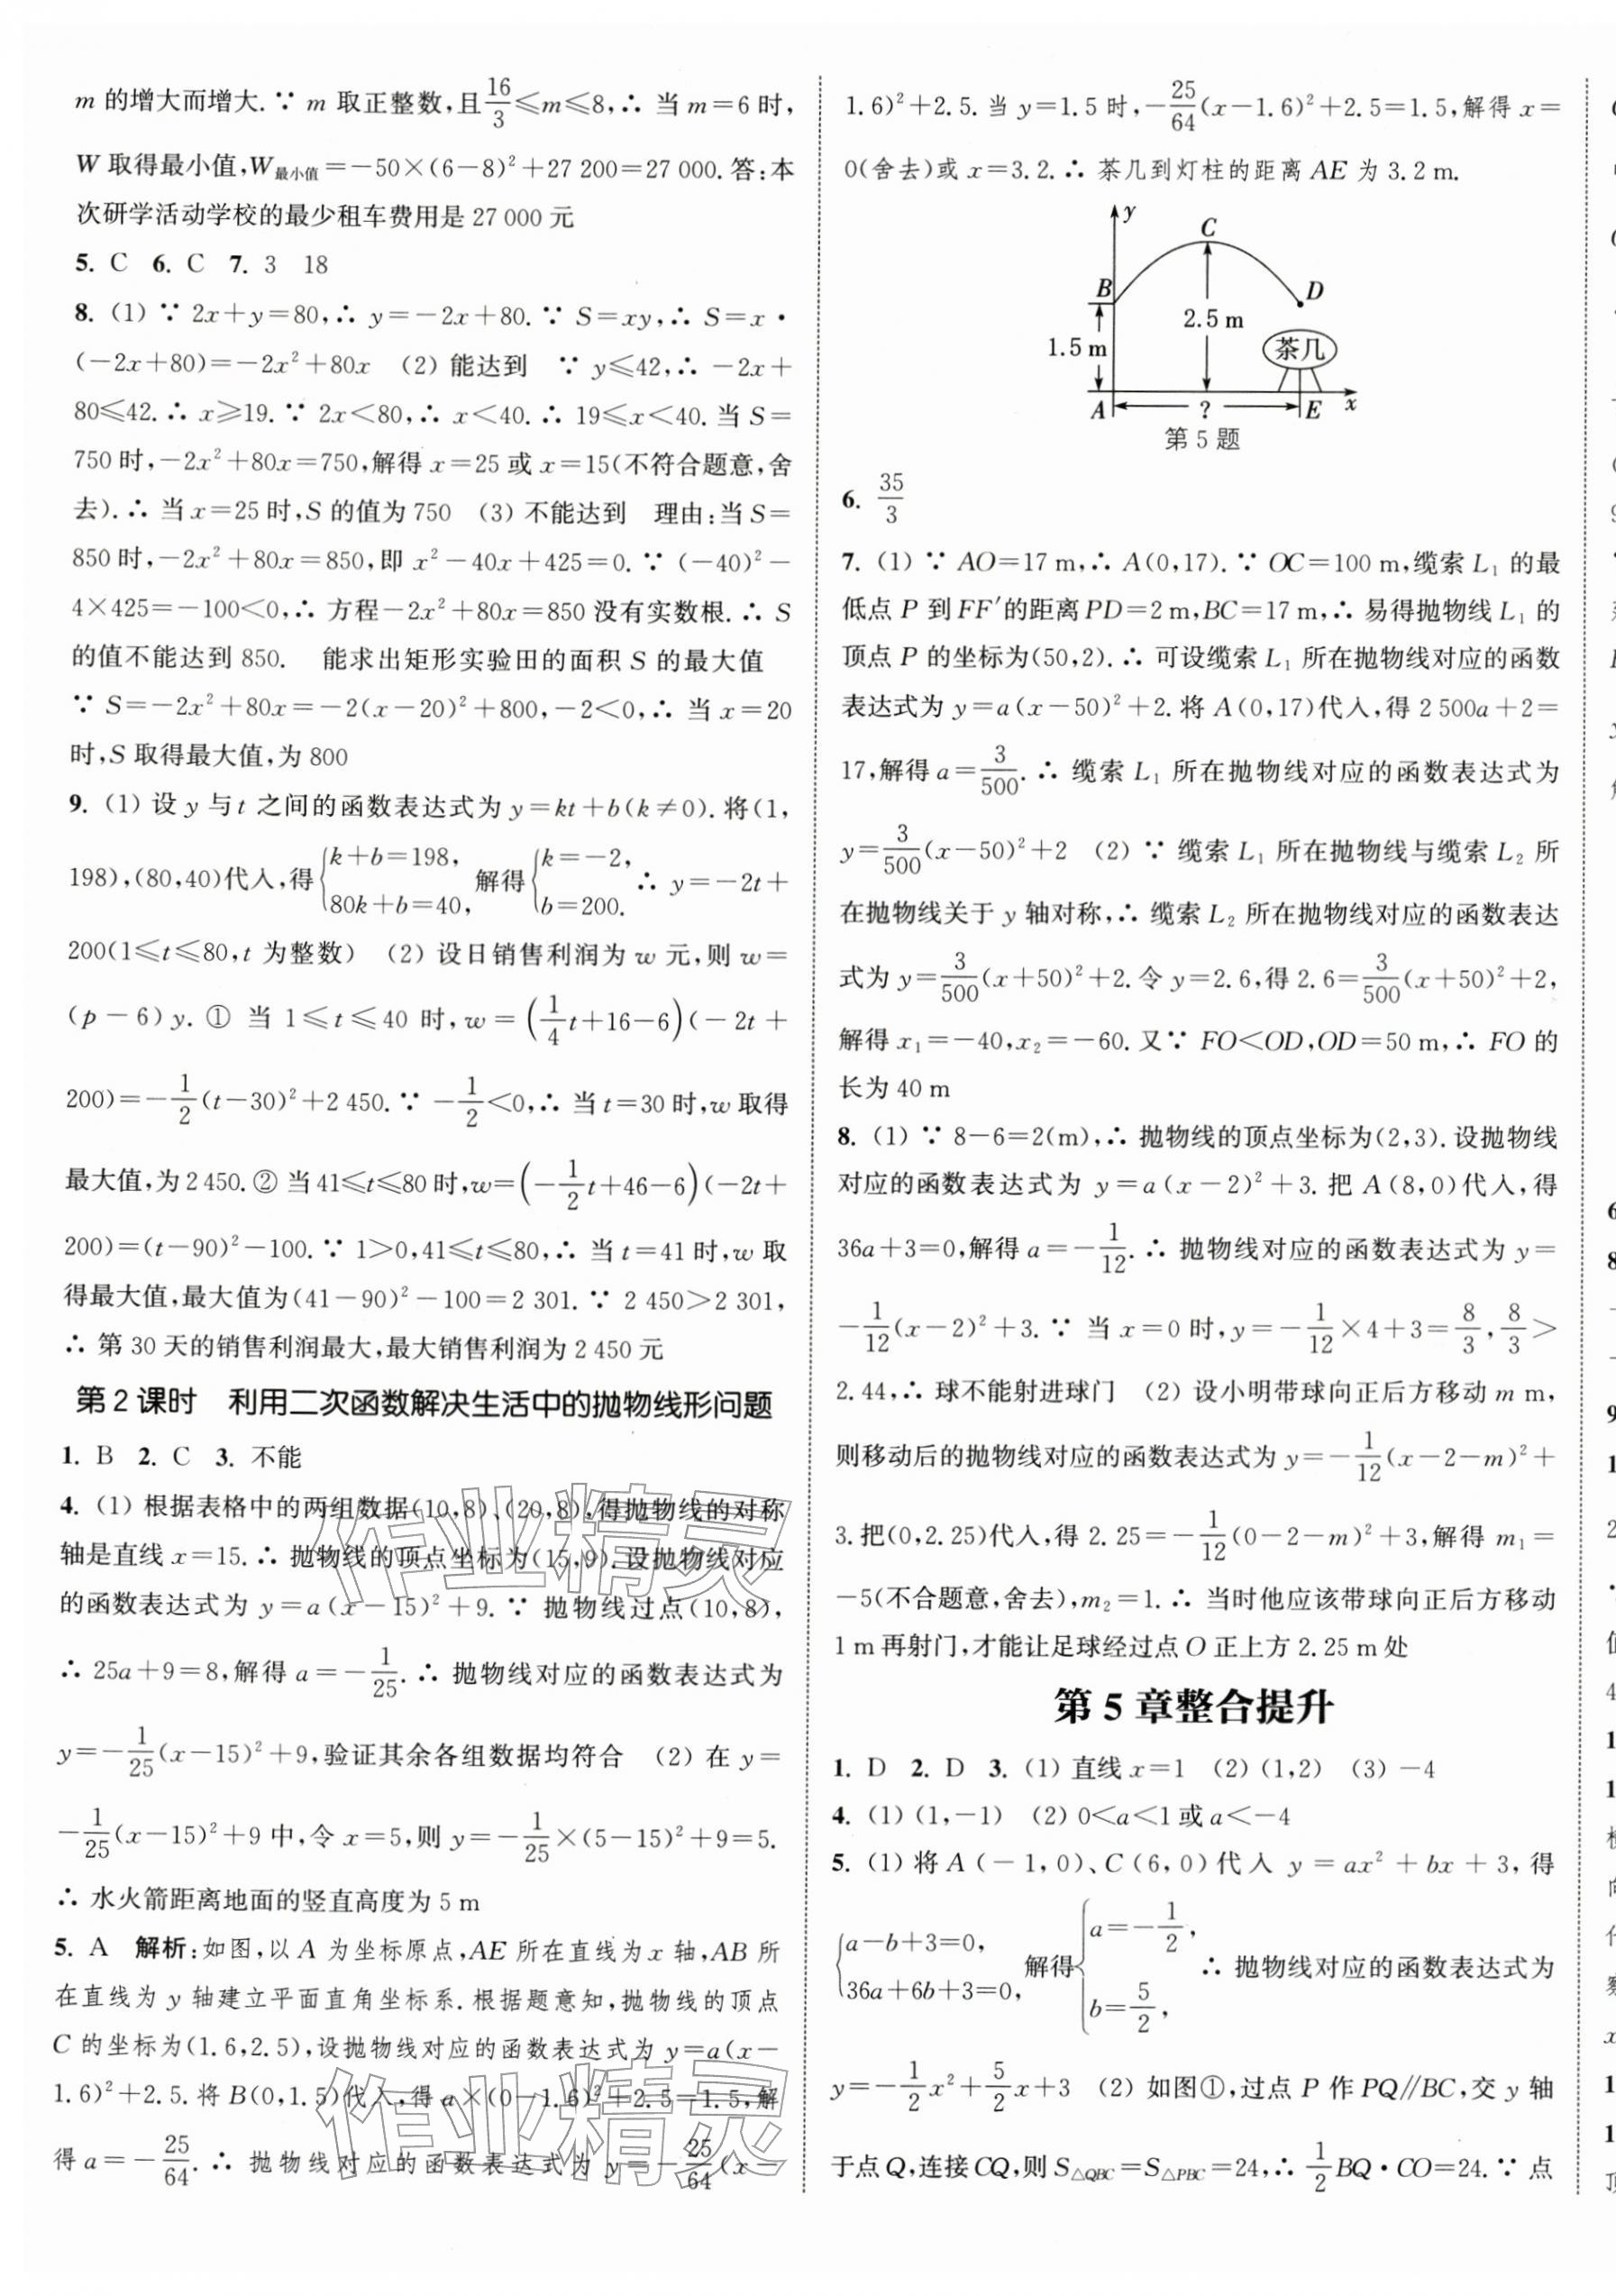 m 的增大而增大.∵ m 取正整数,且16/3≤m≤8,∴ 当 m=6 时,
W 取得最小值,W最小值=-50×(6-8)²+27 200=27 000.答:本
次研学活动学校的最少租车费用是 27 000 元
5. C 6. C 7. 3 18
8. (1) ∵ 2x+y=80,∴ y=-2x+80.∵ S=xy,∴ S=x·
(-2x+80)=-2x²+80x (2) 能达到 ∵ y≤42,∴ -2x+
80≤42.∴ x≥19.∵ 2x<80,∴ x<40.∴ 19≤x<40.当 S=
750 时,-2x²+80x=750,解得 x=25 或 x=15(不符合题意,舍
去).∴ 当 x=25 时,S 的值为 750 (3) 不能达到 理由:当 S=
850 时,-2x²+80x=850,即 x²-40x+425=0.∵ (-40)²-
4×425=-100<0,∴ 方程-2x²+80x=850 没有实数根.∴ S
的值不能达到 850. 能求出矩形实验田的面积 S 的最大值
∵ S=-2x²+80x=-2(x-20)²+800,-2<0,∴ 当 x=20
时,S 取得最大值,为 800
9. (1) 设 y 与 t 之间的函数表达式为 y=kt+b(k≠0).将(1,
198),(80,40)代入,得{k+b=198, 80k+b=40, 解得{k=-2, b=200. ∴ y=-2t+
200(1≤t≤80,t 为整数) (2) 设日销售利润为 w 元,则 w=
(p-6)y.① 当 1≤t≤40 时,w=(1/4t+16-6)(-2t+
200)=-1/2(t-30)²+2 450.∵ -1/2<0,∴ 当 t=30 时,w 取得
最大值,为 2 450.② 当 41≤t≤80 时,w=(-1/2t+46-6)(-2t+
200)=(t-90)²-100.∵ 1>0,41≤t≤80,∴ 当 t=41 时,w 取
得最大值,最大值为(41-90)²-100=2 301.∵ 2 450>2 301,
∴ 第 30 天的销售利润最大,最大销售利润为 2 450 元
第 2 课时 利用二次函数解决生活中的抛物线形问题
1. B 2. C 3. 不能
4. (1) 根据表格中的两组数据(10,8)、(20,8),得抛物线的对称
轴是直线 x=15.∴ 抛物线的顶点坐标为(15,9).设抛物线对应
的函数表达式为 y=a(x-15)²+9.∵ 抛物线过点(10,8),
∴ 25a+9=8,解得 a=-1/25.∴ 抛物线对应的函数表达式为
y=-1/25(x-15)²+9,验证其余各组数据均符合 (2) 在 y=
-1/25(x-15)²+9 中,令 x=5,则 y=-1/25×(5-15)²+9=5.
∴ 水火箭距离地面的竖直高度为 5 m
5. A 解析:如图,以 A 为坐标原点,AE 所在直线为 x 轴,AB 所
在直线为 y 轴建立平面直角坐标系.根据题意知,抛物线的顶点
C 的坐标为(1.6,2.5),设抛物线对应的函数表达式为 y=a(x-
1.6)²+2.5.将 B(0,1.5)代入,得 a×(0-1.6)²+2.5=1.5,解
得 a=-25/64.∴ 抛物线对应的函数表达式为 y=-25/64(x-
作业精灵
作业精灵
1.6)²+2.5.当 y=1.5 时,-25/64(x-1.6)²+2.5=1.5,解得 x=
0(舍去)或 x=3.2.∴ 茶几到灯柱的距离 AE 为 3.2 m.
y
C
B
D
2.5 m
1.5 m
茶几
A ? E x
第 5 题
6. 35/3
7. (1) ∵ AO=17 m,∴ A(0,17).∵ OC=100 m,缆索 L₁ 的最
低点 P 到 FF′的距离 PD=2 m,BC=17 m,∴ 易得抛物线 L₁ 的
顶点 P 的坐标为(50,2).∴ 可设缆索 L₁ 所在抛物线对应的函数
表达式为 y=a(x-50)²+2.将 A(0,17)代入,得 2 500a+2=
17,解得 a=3/500.∴ 缆索 L₁ 所在抛物线对应的函数表达式为
y=3/500(x-50)²+2 (2) ∵ 缆索 L₁ 所在抛物线与缆索 L₂ 所
在抛物线关于 y 轴对称,∴ 缆索 L₂ 所在抛物线对应的函数表达
式为 y=3/500(x+50)²+2.令 y=2.6,得 2.6=3/500(x+50)²+2,
解得 x₁=-40,x₂=-60.又∵ FO<OD,OD=50 m,∴ FO 的
长为 40 m
8. (1) ∵ 8-6=2(m),∴ 抛物线的顶点坐标为(2,3).设抛物线
对应的函数表达式为 y=a(x-2)²+3.把 A(8,0)代入,得
36a+3=0,解得 a=-1/12.∴ 抛物线对应的函数表达式为 y=
-1/12(x-2)²+3.∵ 当 x=0 时,y=-1/12×4+3=8/3,8/3>
2.44,∴ 球不能射进球门 (2) 设小明带球向正后方移动 m m,
则移动后的抛物线对应的函数表达式为 y=-1/12(x-2-m)²+
3.把(0,2.25)代入,得 2.25=-1/12(0-2-m)²+3,解得 m₁=
-5(不合题意,舍去),m₂=1.∴ 当时他应该带球向正后方移动
1 m 再射门,才能让足球经过点 O 正上方 2.25 m 处
第 5 章整合提升
1. D 2. D 3. (1) 直线 x=1 (2) (1,2) (3) -4
4. (1) (1,-1) (2) 0<a<1 或 a<-4
5. (1) 将 A(-1,0)、C(6,0)代入 y=ax²+bx+3,得
{a-b+3=0, 36a+6b+3=0, 解得{a=-1/2, b=5/2, ∴ 抛物线对应的函数表达式为
y=-1/2x²+5/2x+3 (2) 如图①,过点 P 作 PQ∥BC,交 y 轴
于点 Q,连接 CQ,则 S△QBC=S△PBC=24,∴ 1/2BQ·CO=24.∵ 点